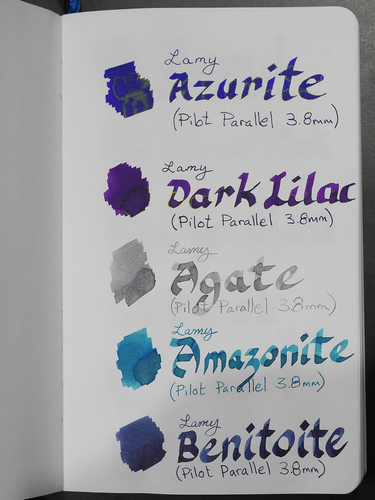 Lamy
Azurite
(Pilot Parallel 3.8mm)
Lamy
Dark Lilac
(Pilot Parallel 3.8mm)
Lamy
Agate
(Pilot Parallel 3.8mm)
Lamy
Amazonite
(Pilot Parallel 3.8mm)
Lamy
Benitoite
(Pilot Parallel 3.8mm)